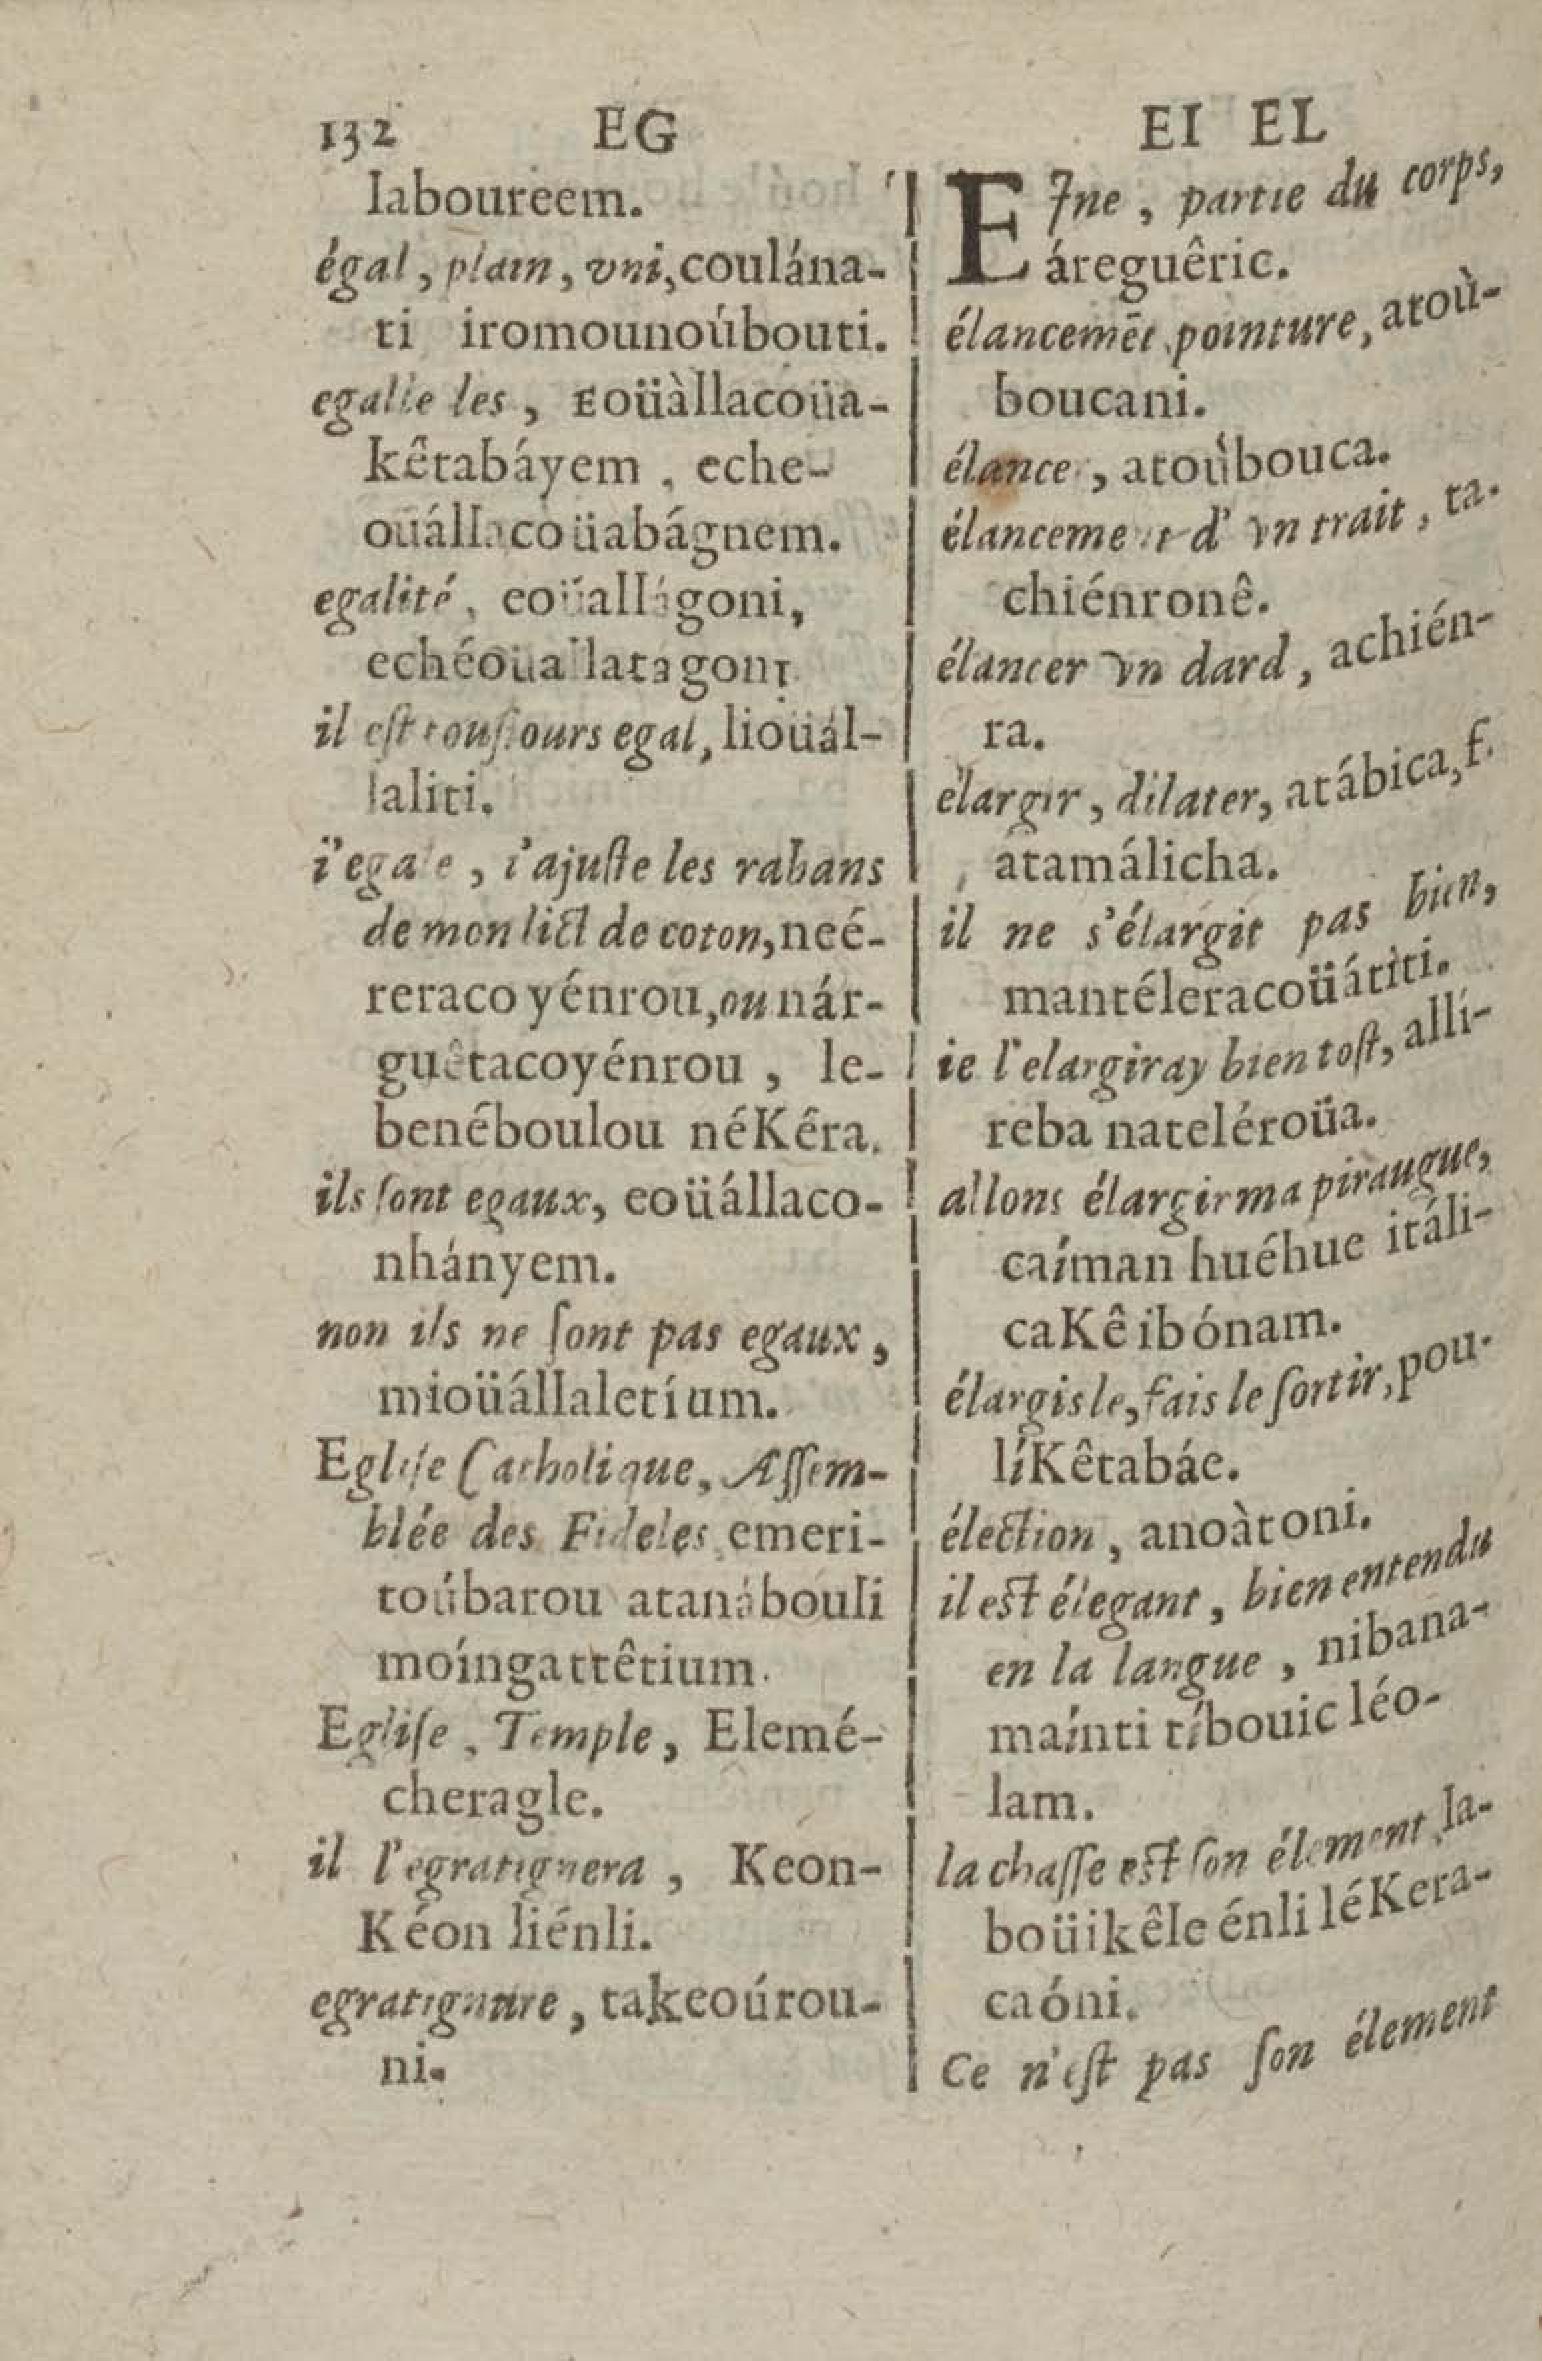 132 EG
laboureem.
égal, plain, vni, coulána-
ti iromounoúbouti.
egalle les, Eoüàllacoüa-
kêtabáyem, eche-
oüállacoüabágnem.
egalité, eoüallágoni,
echéoüallatagoni
il est tousiours egal, lioüál-
laliti.
i'egale, i'ajuste les rabans
de mon lict de coton, neé-
reraco yénrou, ou nár-
guêtacoyénrou, le-
benéboulou néKéra.
ils sont egaux, eoüállaco-
nhányem.
non ils ne sont pas egaux,
mioüállaletíum.
Eglise Catholique, Assem-
blée des Fideles, emeri-
toúbarou atanábouli
moíngattêtium.
Eglise, Temple, Elemé-
cheragle.
il l'egratignera, Keon-
Kéon liénli.
egratignure, takeoúrou-
ni.
EI EL
EIne, partie du corps,
áreguêric.
élancemēt pointure, atoù-
boucani.
élance, atoùbouca.
élancement d'vn trait, ta-
chiénronê.
élancer vn dard, achién-
ra.
élargir, dilater, atábica, f.
átamálicha.
il ne s'élargit pas bien,
mantéleracoüátìti.
ie l'elargiray bien tost, allí-
reba nateléroüa.
allons élargir ma piraugue,
caíman huéhue itáli-
caKê ibónam.
élargis le, fais le sortir, pou-
líKêtabáe.
élection, anoàtoni.
il est élegant, bien entendu
en la langue, nibana-
maínti tíbouic léo-
lam.
la chasse est son élement, la-
boüikêle énli léKera-
caóni.
Ce n'est pas son élement